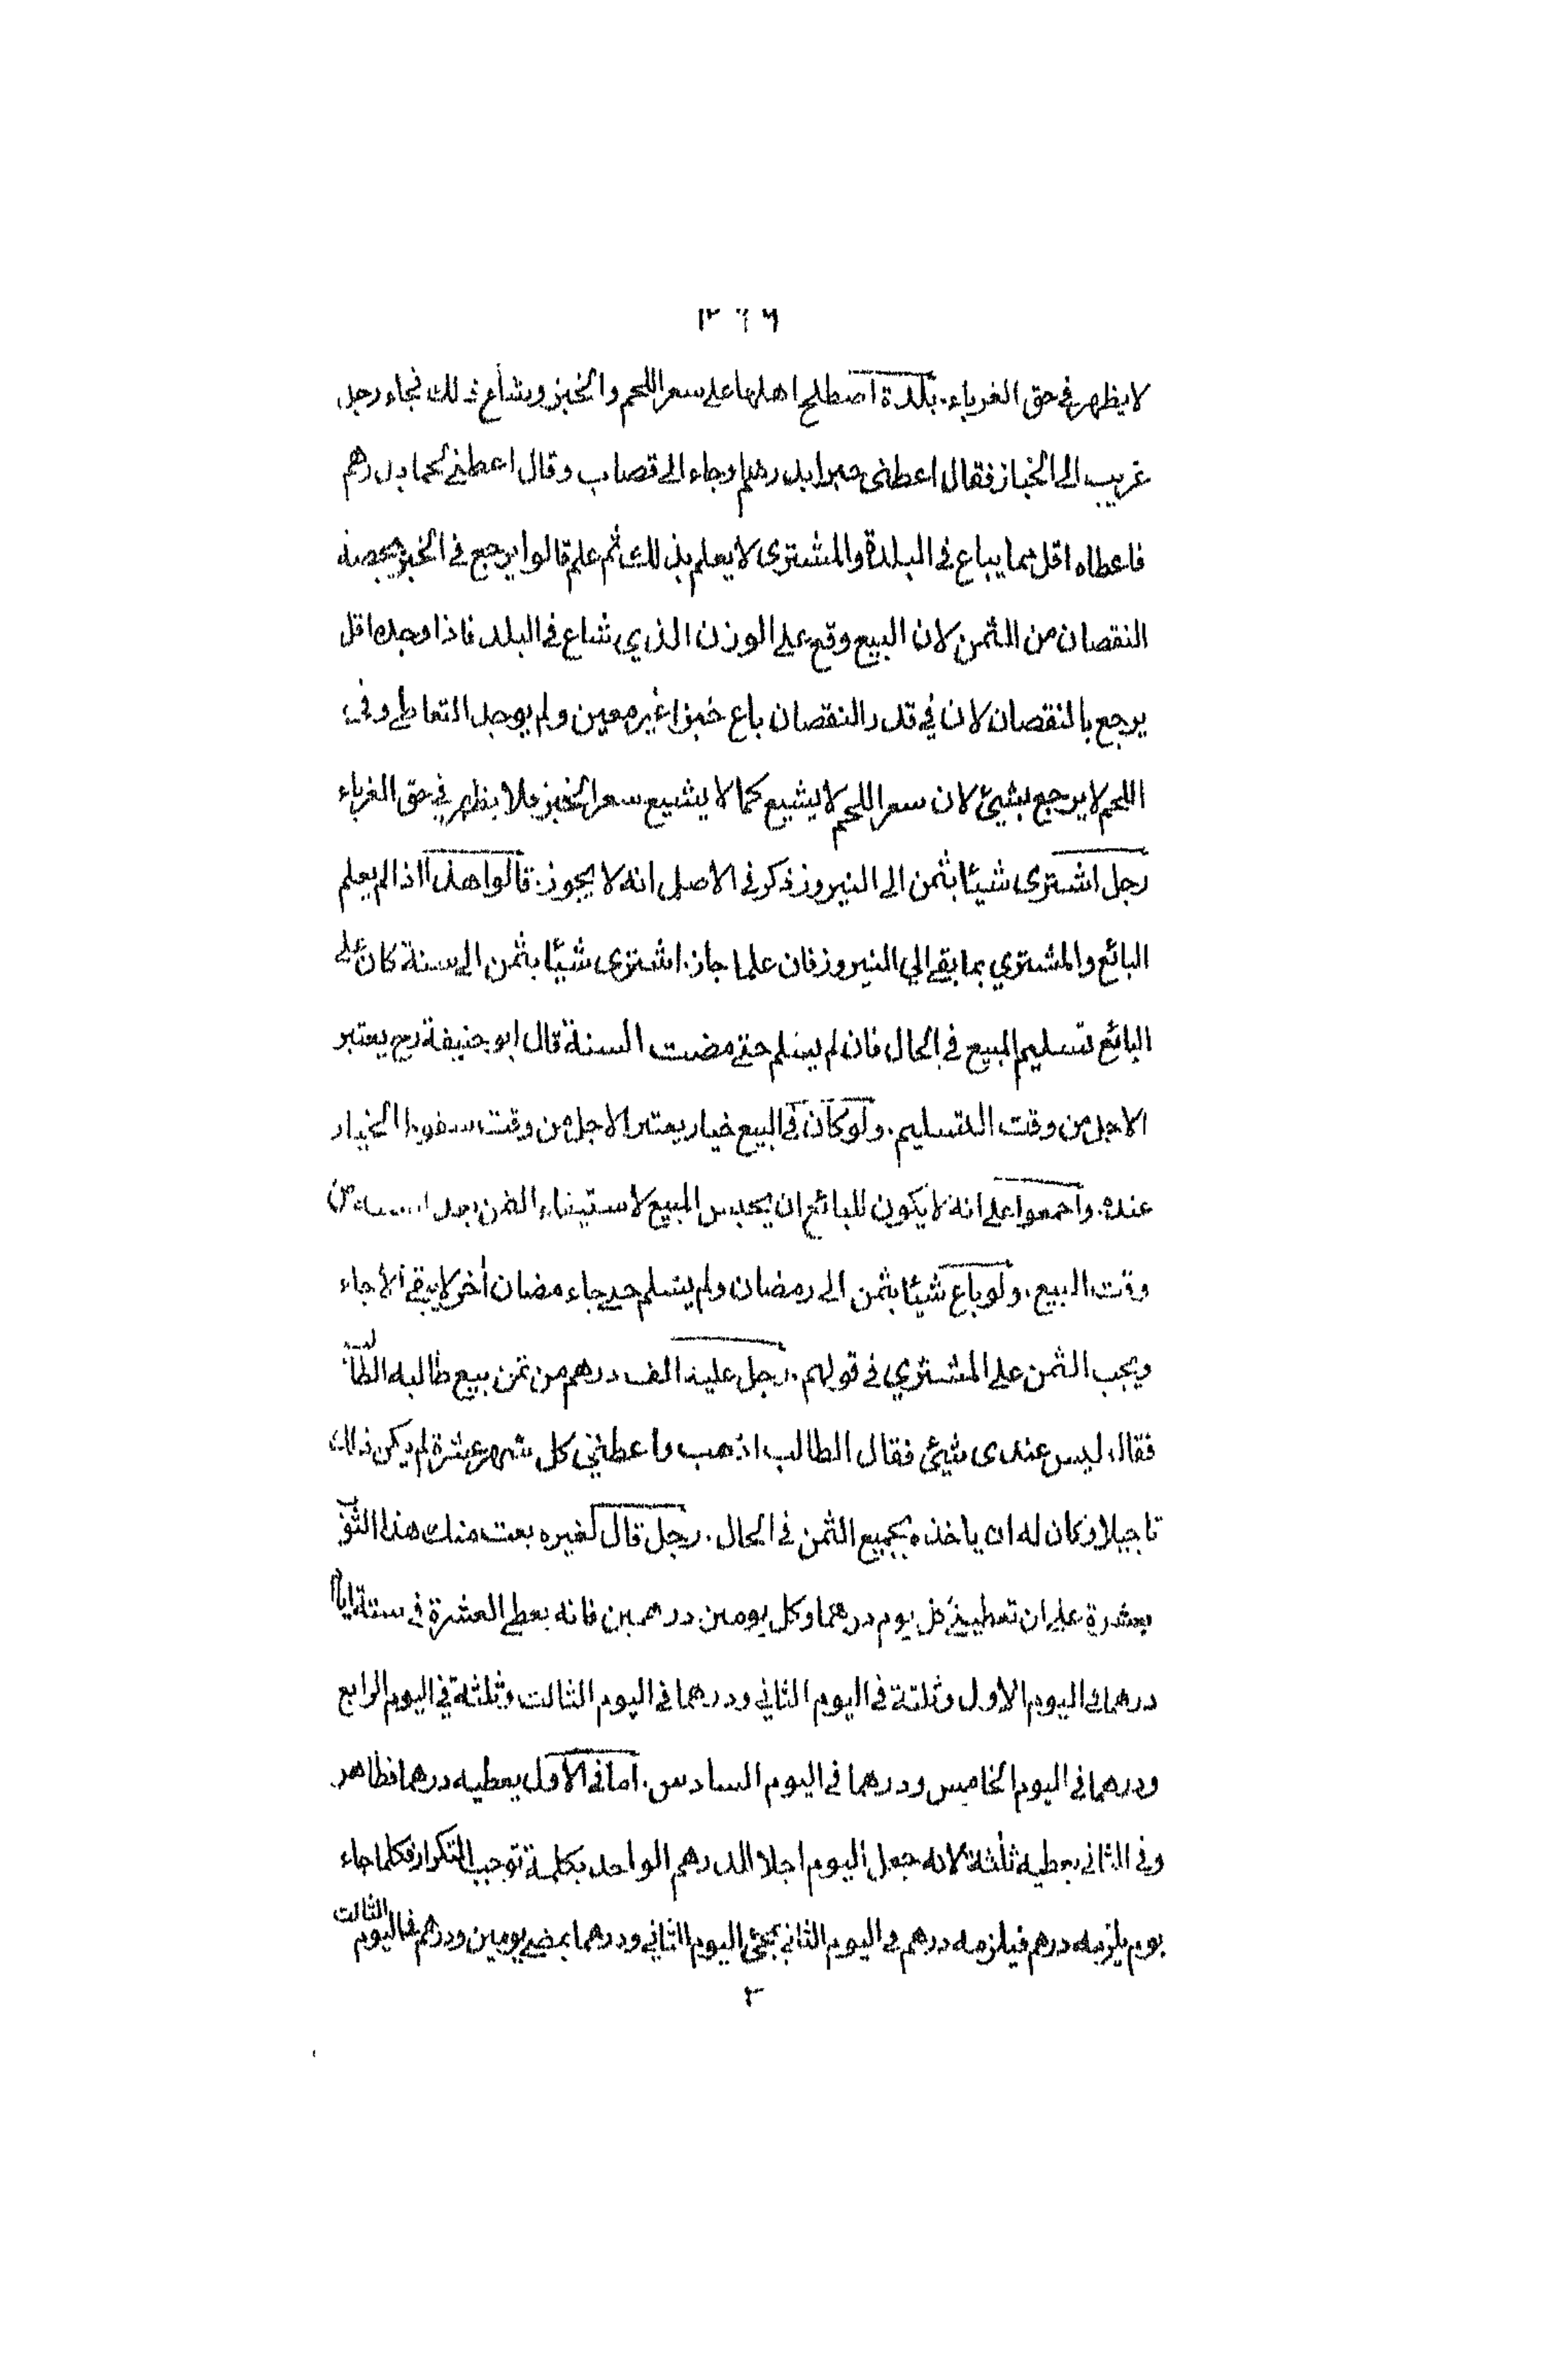 لا يظهر في حق الغرباء. بلدة اصطلح اهلها على سعر اللحم والخبز وشاع ذلك فجاء رجل
غريب الى الخباز فقال اعطنى خبزا بدرهم وجاء الى قصاب وقال اعطنى لحما بدرهم
فاعطاه اقل مما يباع في البلدة والمشترى لا يعلم بذلك ثم علم قالوا يرجع في الخبز بحصة
النقصان من الثمن لان البيع وقع على الوزن الذي شاع في البلد فاذا وجده اقل
يرجع بالنقصان لان في قدر النقصان باع خبزا غير معين ولم يوجد التعاطي وفي
اللحم لا يرجع بشيئ لان سعر اللحم لا يشيع كما لا يشيع سعر الخبز فلا يظهر في حق الغرباء
رجل اشترى شيئا بثمن الى النيروز ذكر في الاصل انه لا يجوز. قالوا هذا اذا لم يعلم
البائع والمشتري بما بقي الي النيروز فان علما جاز. اشترى شيئا بثمن الى سنة كان على
البائع تسليم المبيع في الحال فان لم يسلم حتى مضت السنة قال ابو حنيفة رح يعتبر
الاجل من وقت التسليم. ولو كان في البيع خيار يعتبر الاجل من وقت سقوط الخيار
عنده. واجمعوا على انه لا يكون للبائع ان يحبس المبيع لاستيفاء الثمن بعد من
وقت البيع. ولو باع شيئا بثمن الى رمضان ولم يسلم جاء مضان أخر لا يبقى الاجاء
ويجب الثمن على المشتري في قولهم. رجل عليه الف درهم من ثمن بيع طالبه الطالب
فقال ليس عندى شيئ فقال الطالب اذهب واعطني كل شهر عشرة لم يكن ذلك
تاجيلا وكان له ان ياخذه بجميع الثمن في الحال. رجل قال لغيره بعت منك هذا الثوب
بعشرة على ان تعطيني كل يوم درهما وكل يومين درهمين فانه يعطي العشرة في ستة ايام
درهما في اليوم الاول وثلثة في اليوم الثاني ودرهما في اليوم الثالث وثلثة في اليوم الرابع
ودرهما في اليوم الخامس ودرهما في اليوم السادس. اما في الاول يعطيه درهما فظاهر
وفي الثاني يعطيه ثلثة لانه جعل اليوم اجلا للدرهم الواحد بكلمة توجب التكرار فكلما جاء
يوم يلزمه درهم فيلزمه درهم في اليوم الثاني بمجئ اليوم الثاني ودرهما بمضي يومين ودرهم في اليوم الثالث